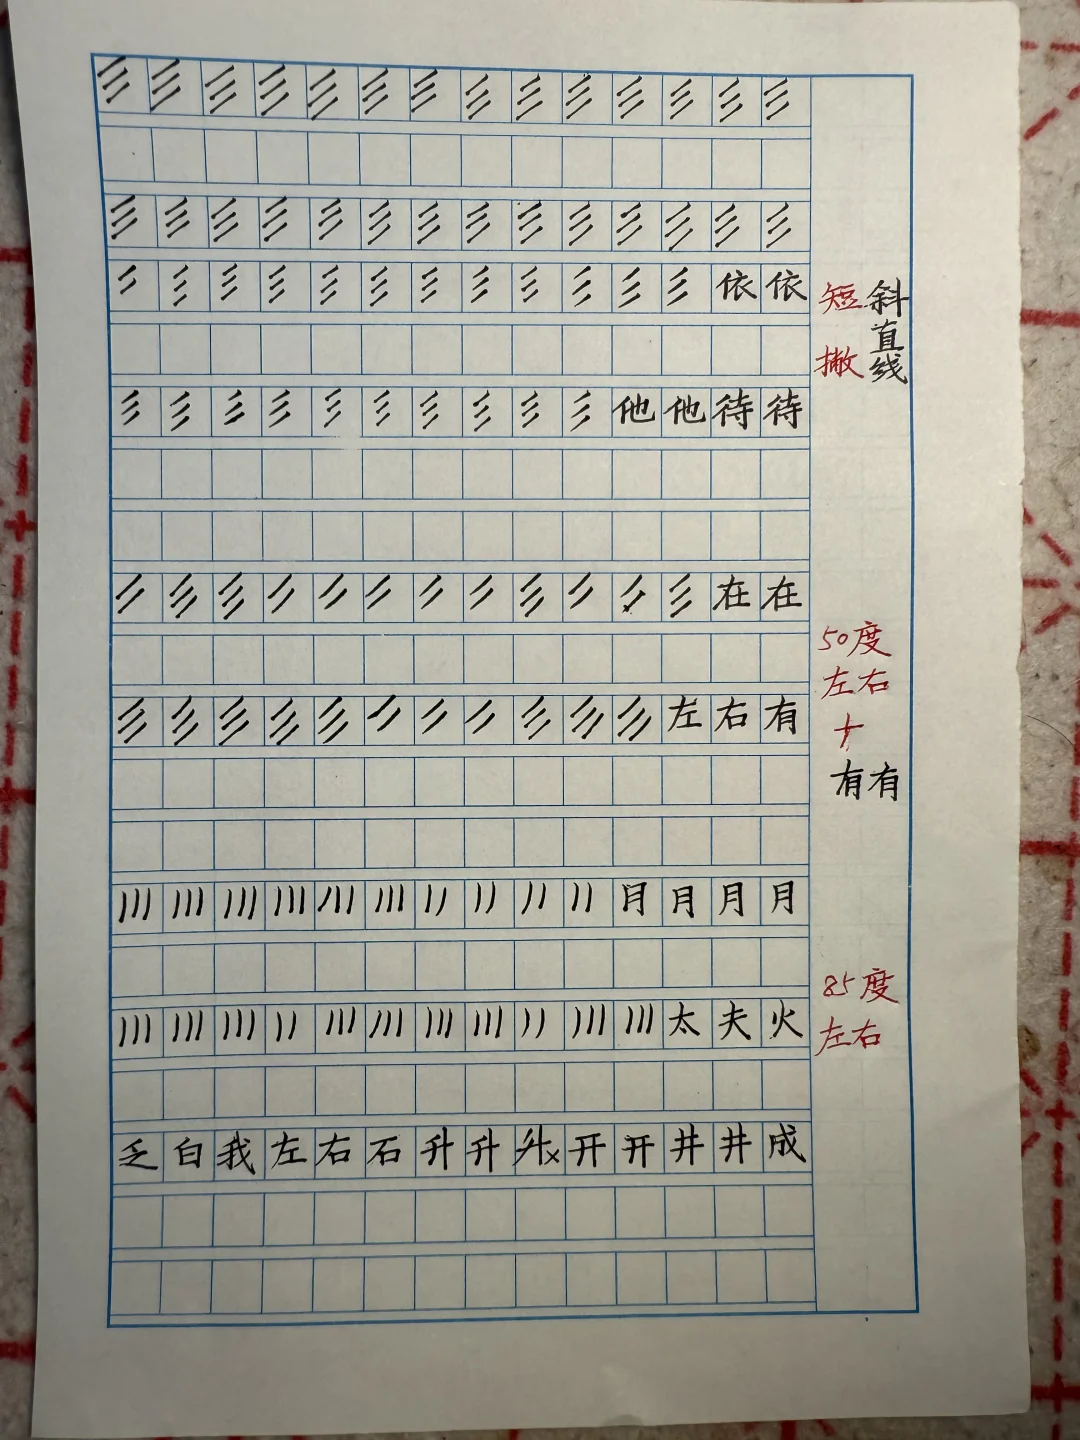 依依
短斜
直
撇线
他他待待
在在
50度
左右
左右有
有有
月月月月
85度
太夫火
左右
乏白我左右石升升升x开开井井成